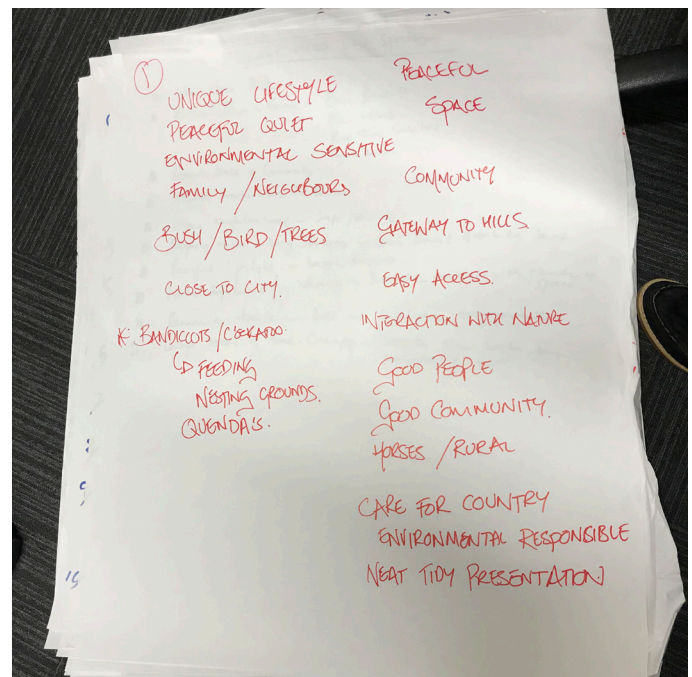 1
UNIQUE LIFESTYLE
PEACEFUL QUIET
ENVIRONMENTAL SENSITIVE
FAMILY / NEIGHBOURS
BUSH / BIRD / TREES
CLOSE TO CITY.
BANDICOTS /
↳ FEEDING
NESTING GROUNDS.
QUENDA'S.
PEACEFUL
SPACE
COMMUNITY
GATEWAY TO HILLS
EASY ACCESS.
INTERACTION WITH NATURE
GOOD PEOPLE
GOOD COMMUNITY.
HORSES / RURAL
CARE FOR COUNTRY
ENVIRONMENTAL RESPONSIBLE
NEAT TIDY PRESENTATION